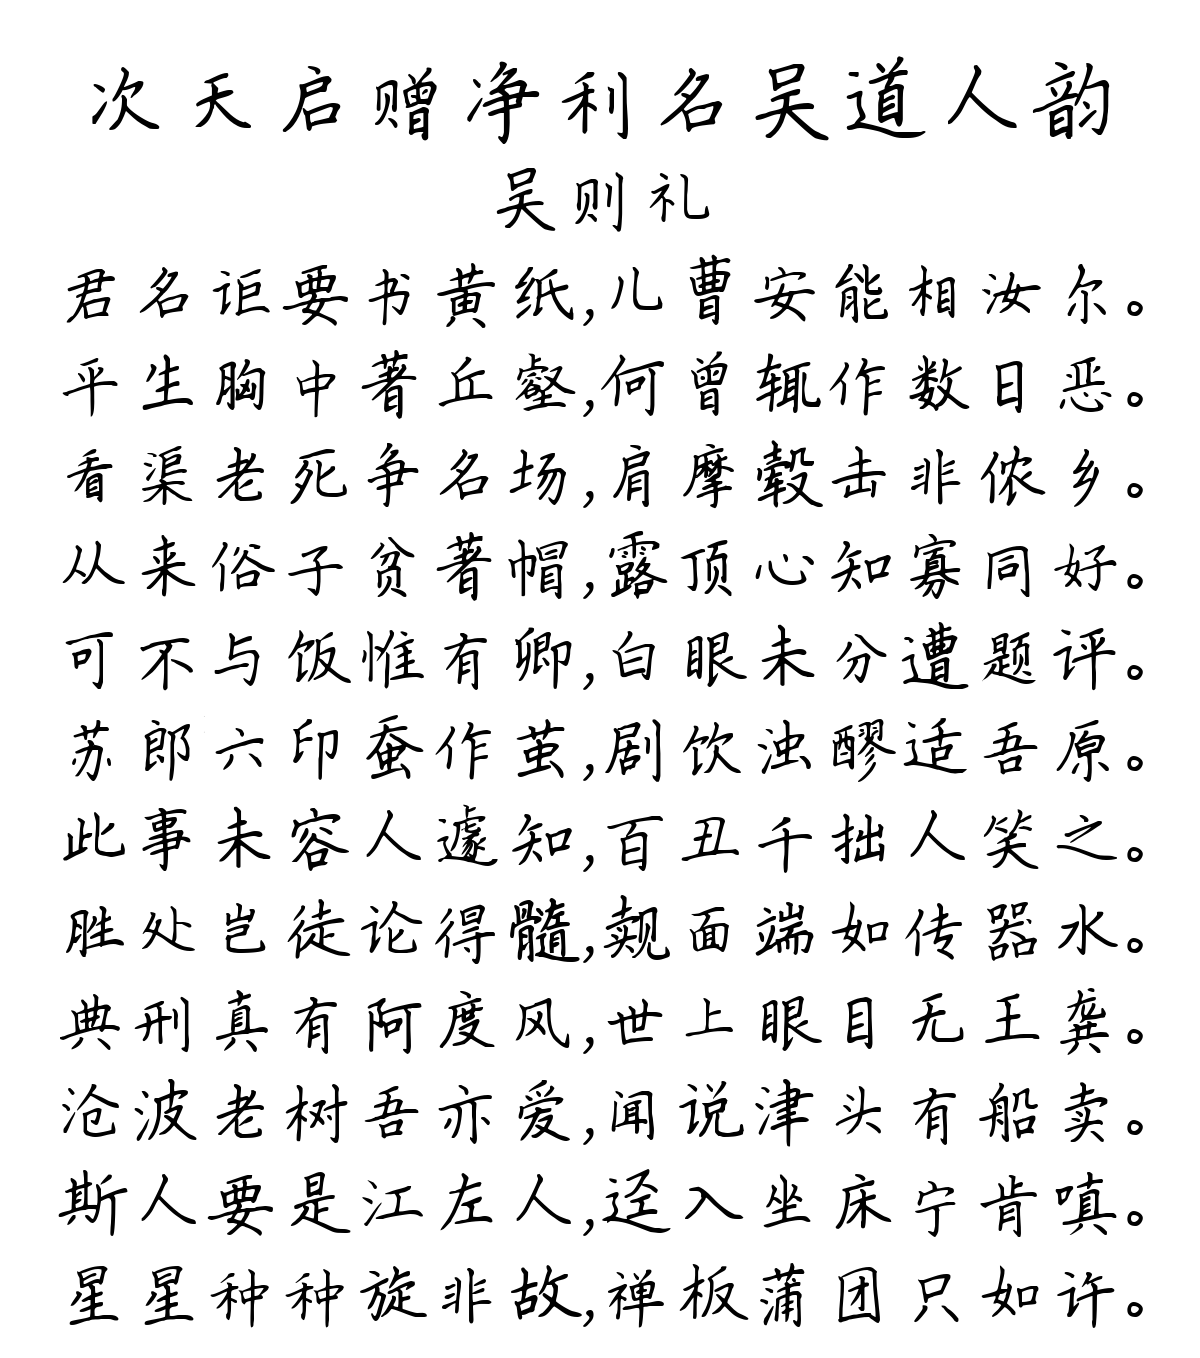 次天启赠净利名吴道人韵
吴则礼
君名讵要书黄纸,儿曹安能相汝尔。
平生胸中著丘壑,何曾辄作数日恶。
看渠老死争名场,肩摩毂击非侬乡。
从来俗子贫著帽,露顶心知寡同好。
可不与饭惟有卿,白眼未分遭题评。
苏郎六印蚕作茧,剧饮浊醪适吾原。
此事未容人遽知,百丑千拙人笑之。
胜处岂徒论得髓,觌面端如传器水。
典刑真有阿度风,世上眼目无王龚。
沧波老树吾亦爱,闻说津头有船卖。
斯人要是江左人,迳入坐床宁肯嗔。
星星种种旋非故,禅板蒲团只如许。